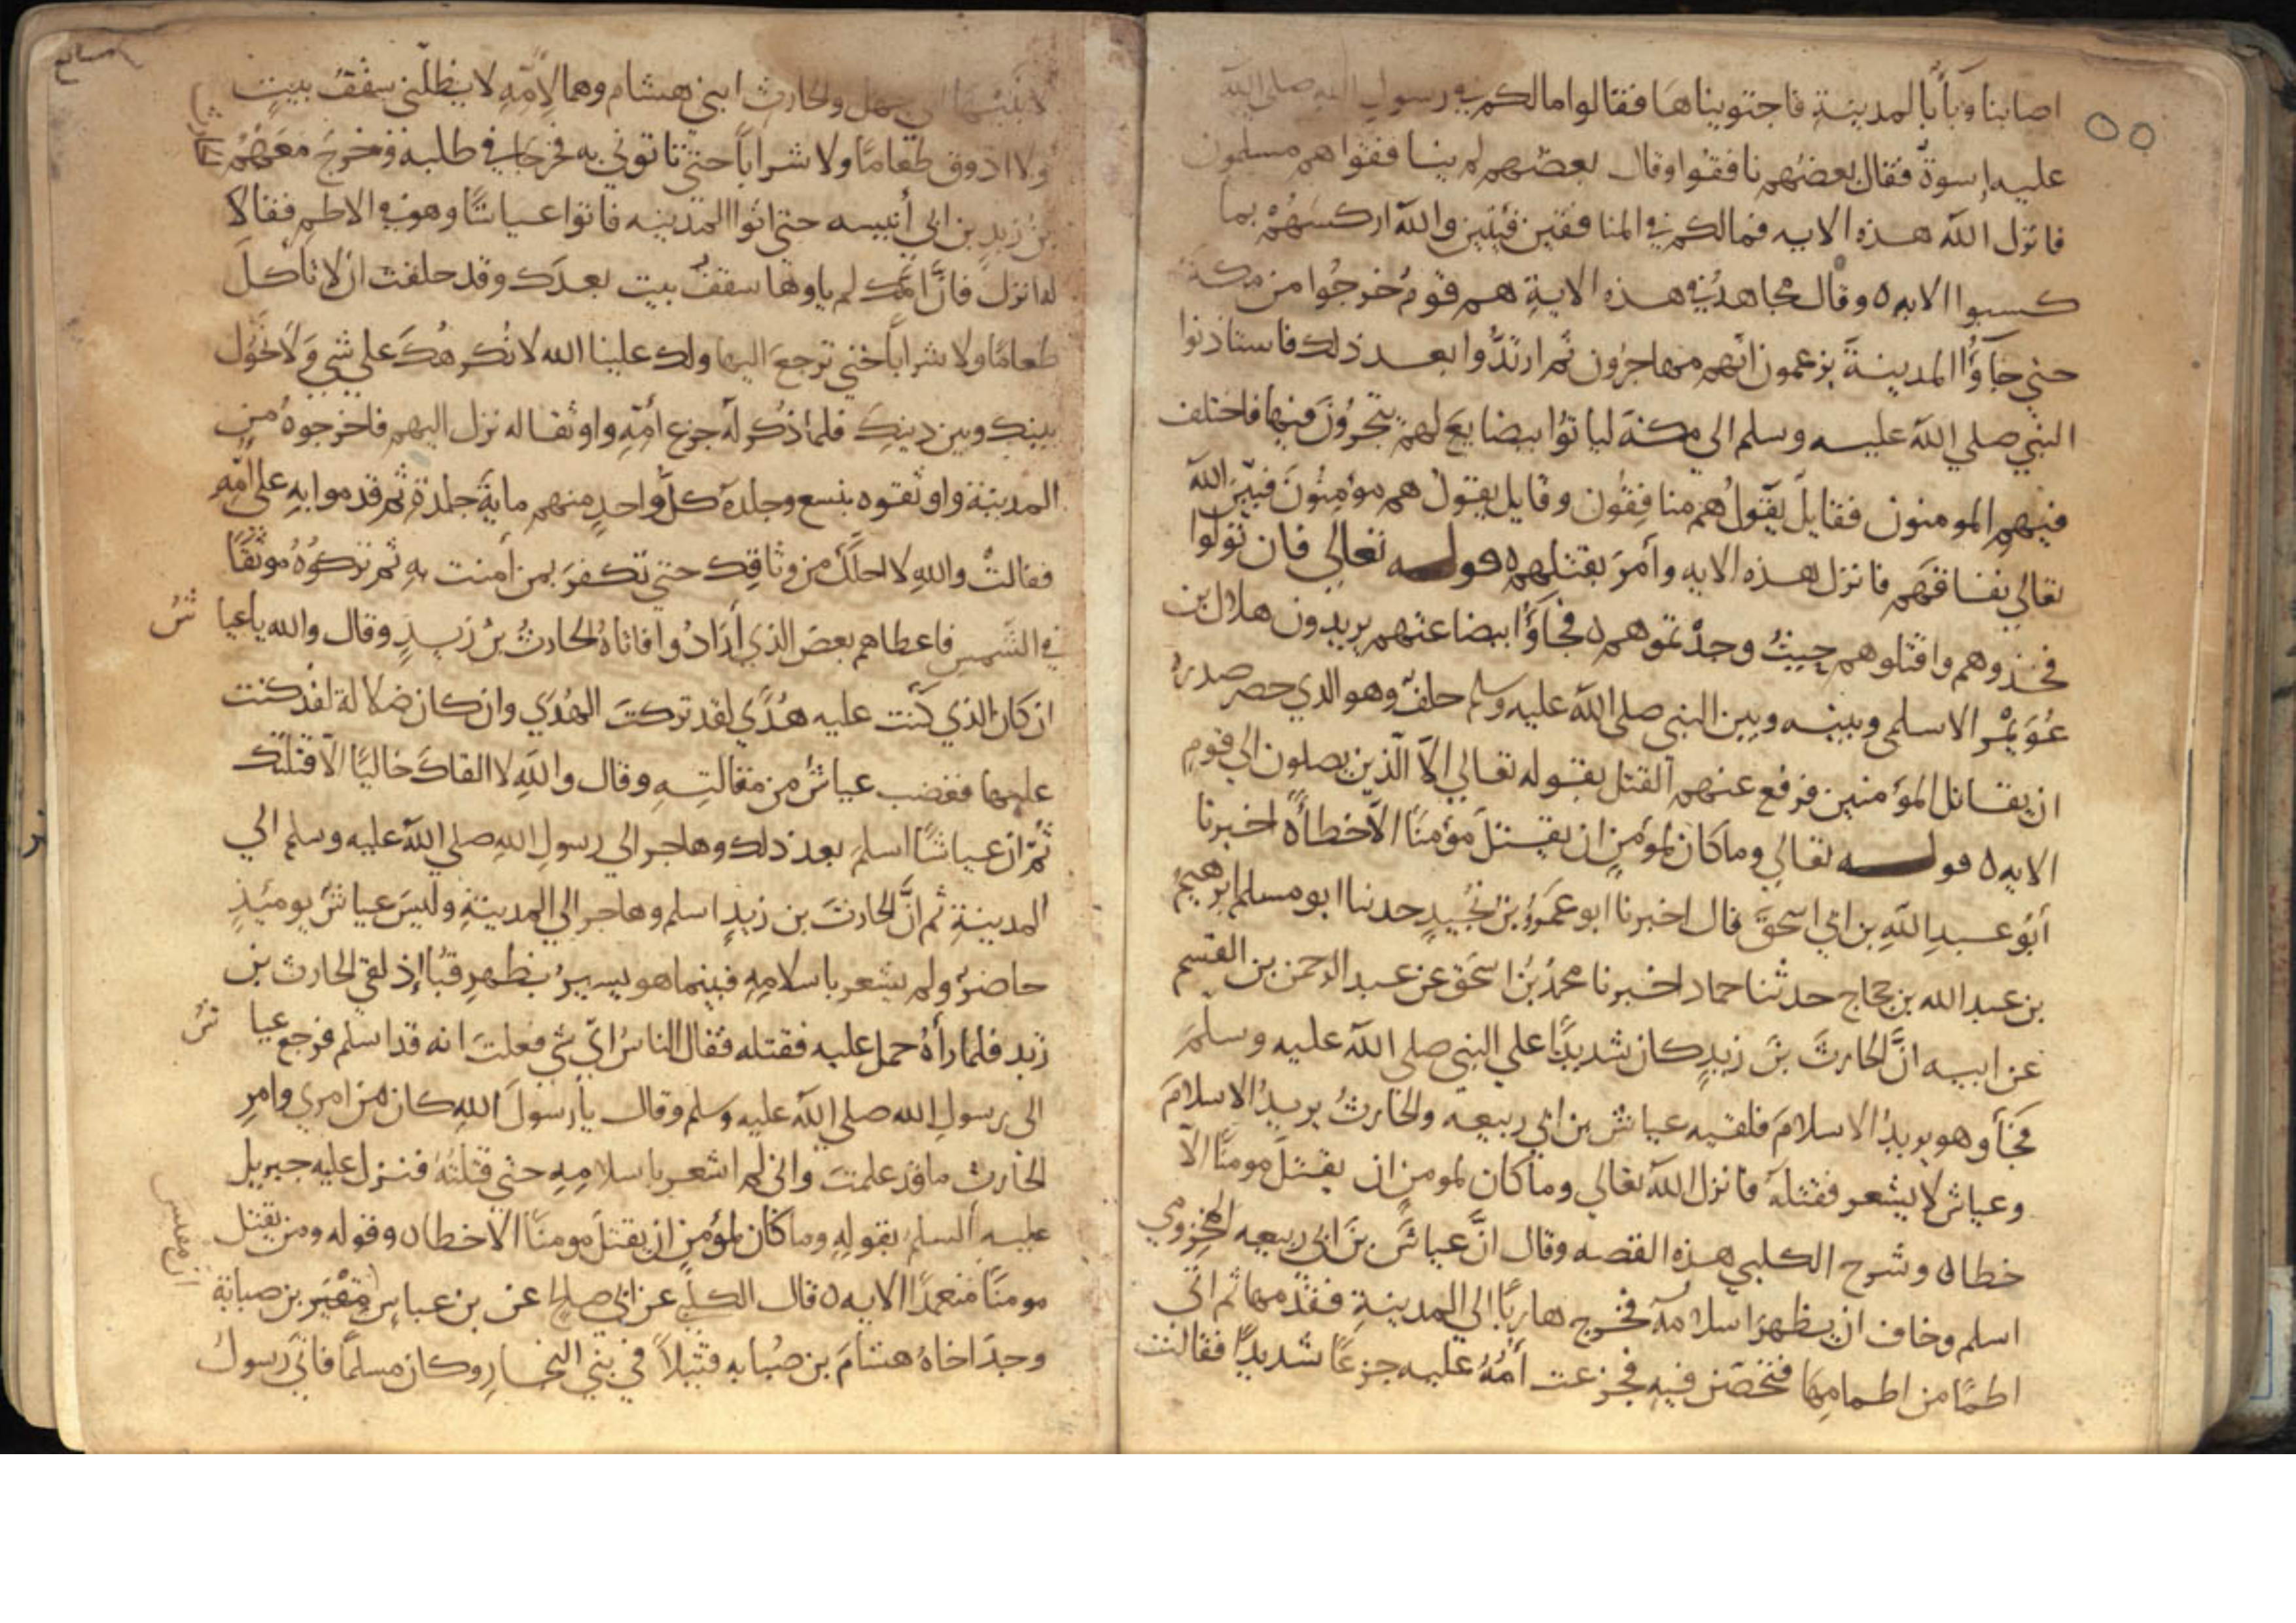 ٥٥
اصابنا وبآبا لمدينة فاجتويناها فقالوا مالكم في رسول الله صلى الله
عليه اسوة فقال بعضهم نافقوا وقال بعضهم لم ينافقوا هم مسلمون
فانزل الله هذه الايه فمالكم في المنافقين فئتين والله اركسهم بما
كسبوا الايه ٥ وقال مجاهد في هذه الاية هم قوم خرجوا من مكة
حتي جآؤا المدينة يزعمون انهم مهاجرون ثم ارتدوا بعد ذلك فاستاذنوا
النبي صلي الله عليه وسلم الي مكة لياتوا ببضايع لهم يتجرون فيها فاختلف
فيهم المومنون فقايل يقول هم منافقون وقايل يقول هم مؤمنون فبين الله
تعالي نفاقهم فانزل هذه الايه وأمر بقتلهم ٥ قوله تعالي فان تولوا
فخذوهم واقتلوهم حيث وجدتموهم ٥ فجآؤا ببضاعتهم يريدون هلال بن
عويمر الاسلمي وبينه وبين النبي صلى الله عليه وسلم حلف وهو الذي حصر صدره
ان يقاتل المؤمنين فرفع عنهم القتل بقوله تعالي الا الذين يصلون الي قوم
الايه ٥ قوله تعالي وما كان لمؤمن ان يقتل مؤمنا الا خطأ ٥ اخبرنا
أبو عبد الله بن ابي اسحق قال اخبرنا ابو عمرو بن نجيد حدثنا ابو مسلم ابرهيم
بن عبد الله بن حجاج حدثنا حماد اخبرنا محمد بن اسحق عن عبد الرحمن بن القسم
عن ابيه ان الحارث بن زيد كان شديدا علي النبي صلى الله عليه وسلم
فجآ وهو يريد الاسلام فلقيه عياش بن ابي ربيعه والحارث يريد الاسلام
وعياش لا يشعر فقتله فانزل الله تعالي وما كان لمومن ان يقتل مومنا الا
خطا ٥ وشرح الكلبي هذه القصه وقال ان عياش بن ابي ربيعه المخزومي
اسلم وخاف ان يظهر اسلامه فخرج هاربا الي المدينة فقدمها ثم اتي
اطما من اطامها فتحصن فيه فجزعت أمه عليه جزعا شديدا فقالت
لابنيها ابي جهل والحارث ابني هشام وهما لامه لا يظلني سقف بيت
ولا اذوق طعاما ولا شرابا حتي تاتوني به فخرجا في طلبه وخرج معهم
بن زيد بن ابي أنيسه حتي اتوا المدينه فاتوا عياشا وهو في الاطم فقالا
له انزل فان امك لم ياوها سقف بيت بعدك وقد حلفت ان لا تاكل
طعاما ولا شرابا حتي ترجع اليها ولك علينا الله لا نكرهك علي شي ولا نحول
بينك وبين دينك فلما ذكرا له جزع أمه واوثقا له نزل اليهم فاخرجوه من
المدينة واوثقوه بنسع وجلده كل واحد منهم ماية جلدة ثم قدموا به علي امه
فقالت والله لا احلك من وثاقك حتي تكفر بمن أمنت به ثم تركوه موثقا
في الشمس فاعطاهم بعض الذي أرادوا فاتاه الحارث بن زيد وقال والله يا عيا ش
ان كان الذي كنت عليه هدي لقد تركت الهدي وان كان ضلالة لقد كنت
عليها فغضب عياش من مقالته وقال والله لا القاك خاليا الا قتلتك
ثم ان عياشا اسلم بعد ذلك وهاجر الي رسول الله صلي الله عليه وسلم الي
المدينة ثم ان الحارث بن زيد اسلم وهاجر الي المدينة وليس عياش يوميذ
حاضر ولم يشعر باسلامه فبينما هو يسير بظهر قبا إذ لقي الحارث بن
زيد فلما رأه حمل عليه فقتله فقال الناس اي شي فعلت انه قد اسلم فرجع عيا ش
الى رسول الله صلي الله عليه وسلم وقال يا رسول الله كان من امري وامر
الحارث ما قد علمت واني لم اشعر باسلامه حتي قتلته فنزل عليه جبريل
عليه السلم بقوله وما كان لمؤمن ان يقتل مومنا الا خطا ٥ وقوله ومن يقتل
مومنا متعمدا الايه ٥ قال الكلبي عن ابي صالح عن بن عباس مقيس بن صبابة
وجد اخاه هشام بن صبابه قتيلا في بني النجار وكان مسلما فاتي رسول